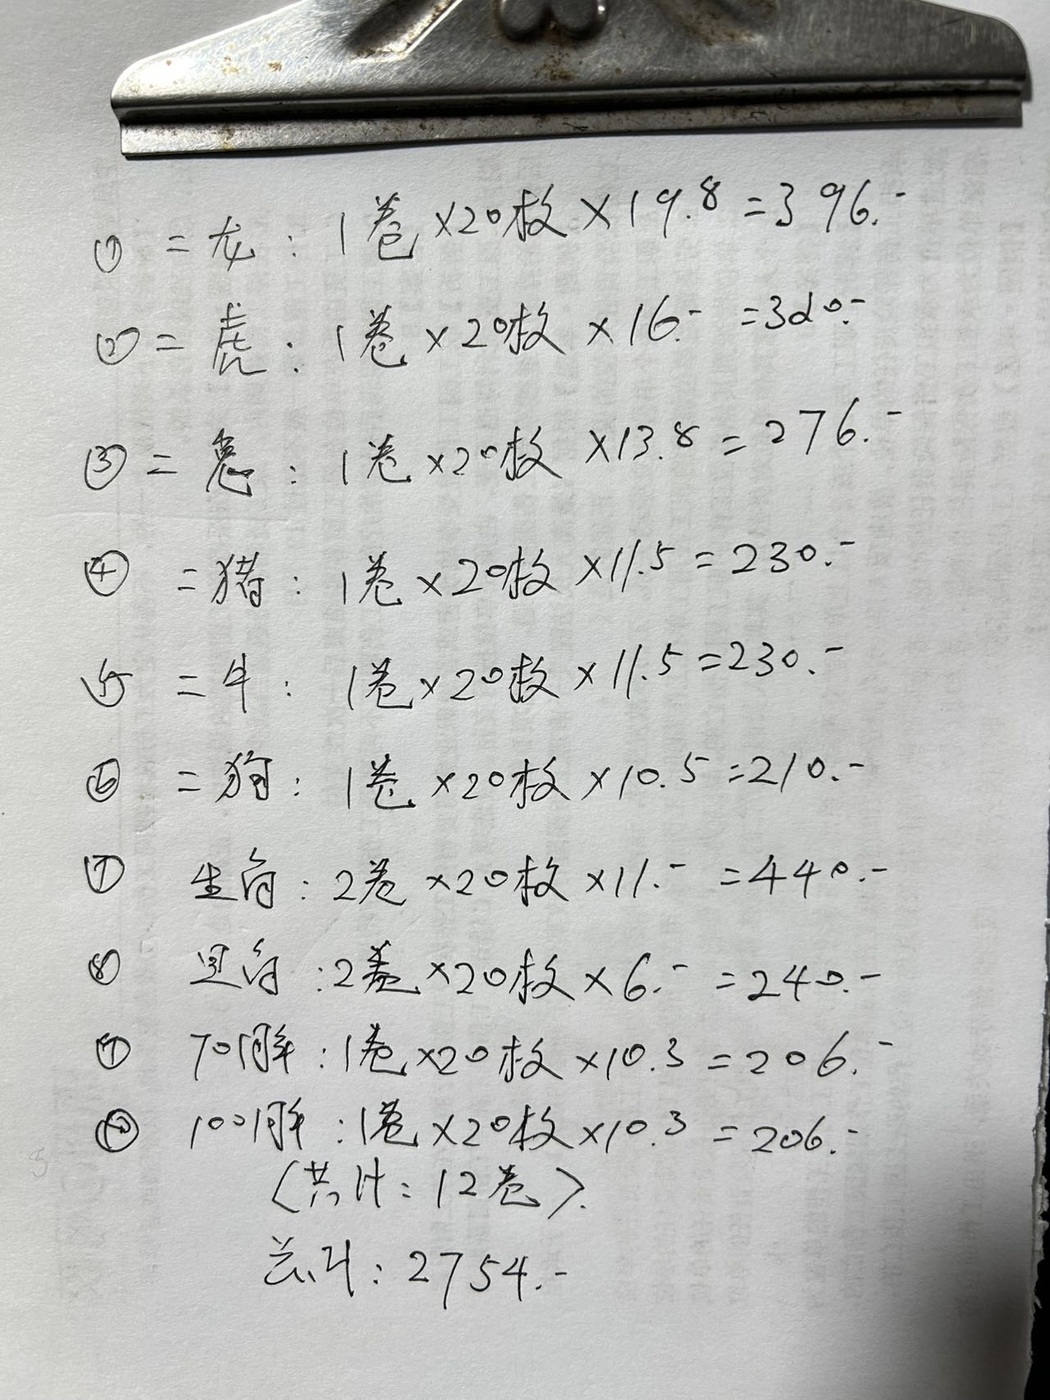 ① 二龙：1卷×20枚×19.8=396.-
② 二虎：1卷×20枚×16.- =320.-
③ 二兔：1卷×20枚×13.8=276.-
④ 二猪：1卷×20枚×11.5=230.-
⑤ 二牛：1卷×20枚×11.5=230.-
⑥ 二狗：1卷×20枚×10.5=210.-
⑦ 生肖：2卷×20枚×11.- =440.-
⑧ 2卷×20枚×6.- =240.-
⑨ 70周年：1卷×20枚×10.3=206.-
⑩ 100周年：1卷×20枚×10.3=206.-
（共计：12卷）.
总计：2754.-